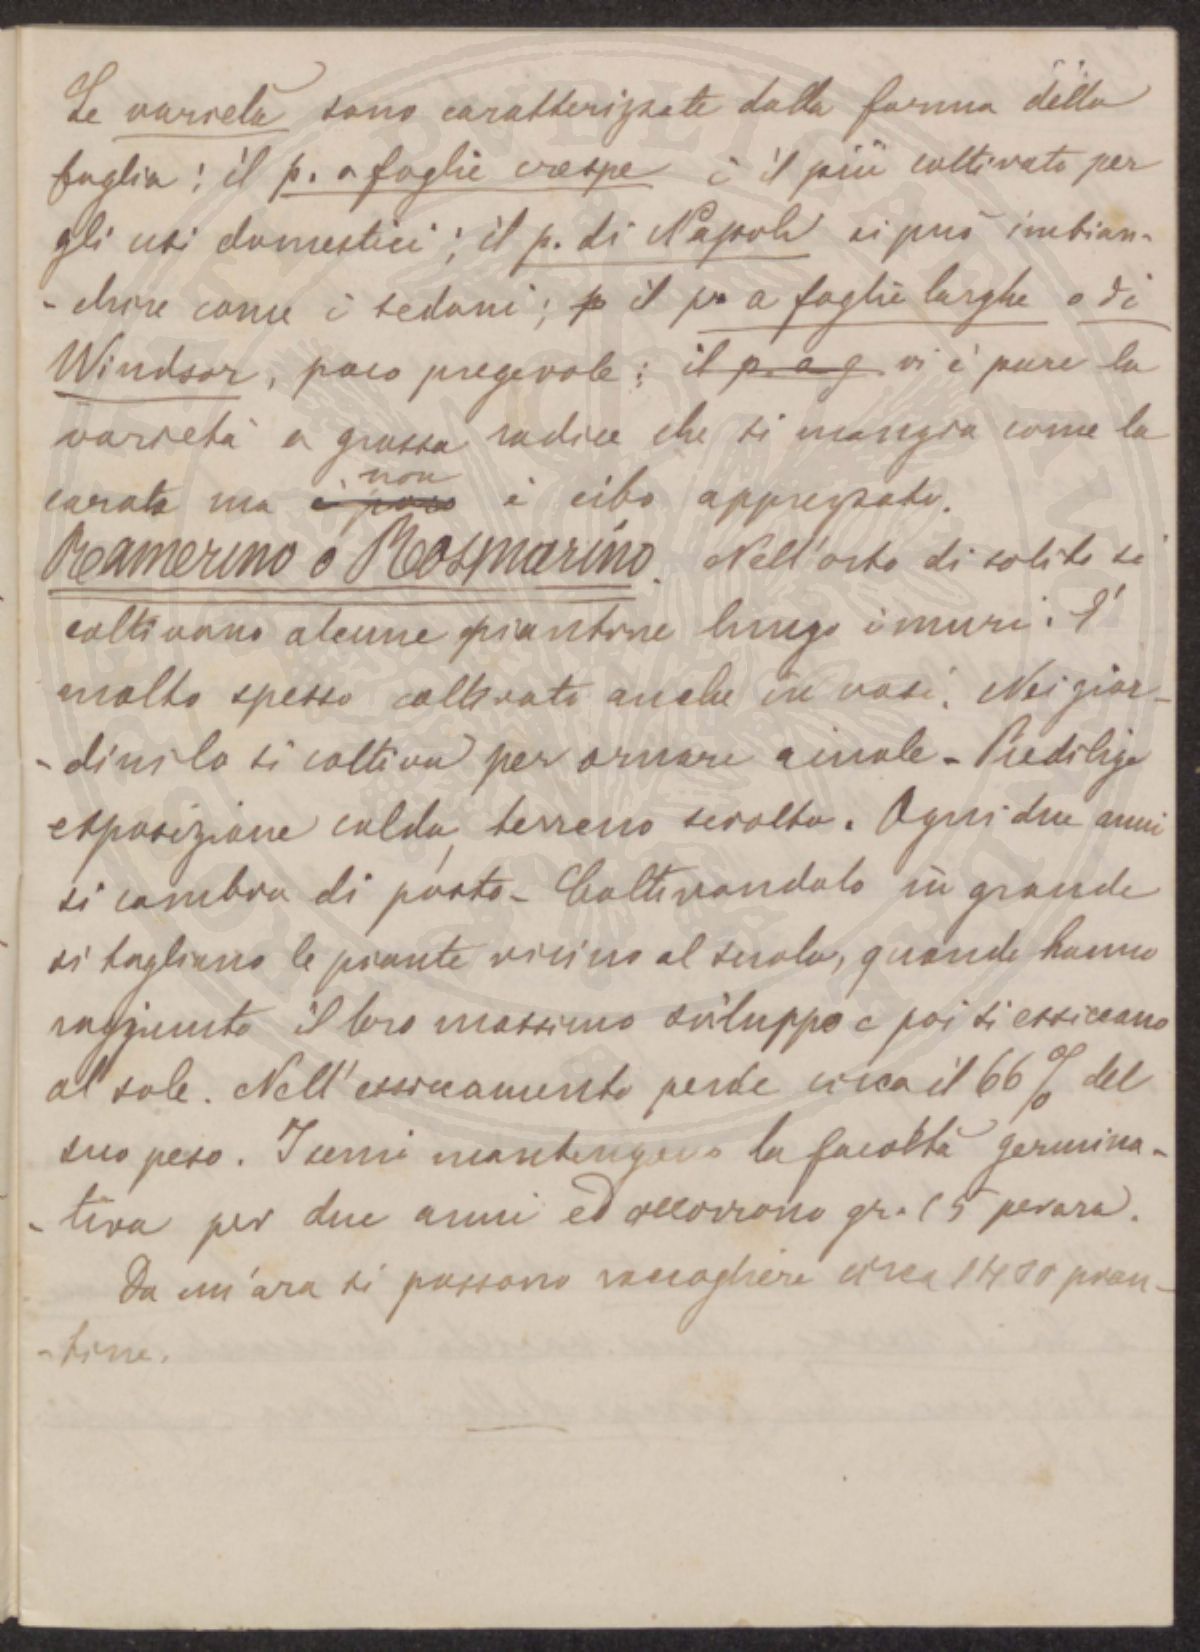 Le varietà sono caratterizzate dalla forma della
foglia: il p. a foglie crespe è il più coltivato per
gli usi domestici; il p. di Napoli si può imbian-
-chire come i sedani; p il p. a foglie larghe o di
Windsor, poco pregevole; il p. a g vi è pure la
varietà a grossa radice che si mangia come la
carota ma è poco non è cibo apprezzato.
Ramerino o Rosmarino. Nell'orto di solito si
coltivano alcune piantine lungo i muri. È
molto spesso coltivato anche in vasi. Nei giar-
-dini lo si coltiva per ornare aiuole - Predilige
esposizione calda, terreno sciolto. Ogni due anni
si cambia di posto - Coltivandolo in grande
si tagliano le piante vicino al suolo, quando hanno
raggiunto il loro massimo sviluppo e poi si essiccano
al sole. Nell'essiccamento perde circa il 66% del
suo peso. I semi mantengono la facoltà germina-
-tiva per due anni ed occorrono gr. 15 per ara.
Da un'ara si possono raccogliere circa 1400 pian-
-tine.